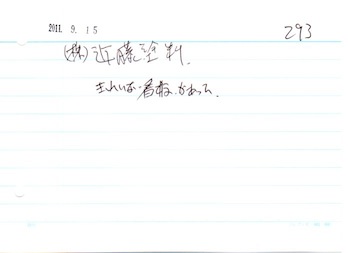 2011. 9. 15
293
(株)近藤塗料.
きれいな看板があった.